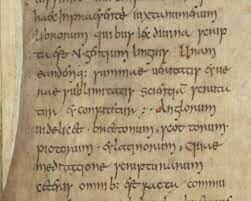 haec inpraesenti iuxtanumerum
librorum quibus lex diuina scrip
ta est .V. gentium linguis Unam
eandemq; summae ueritatis & ue
rae sublimitatis scientiā scruta
tur & confitetur. anglorum
uidelicet. brettonum. scottorum.
pictorum. & latinorum. quae
meditatione scripturarum
ceteris omnib: est facta commu